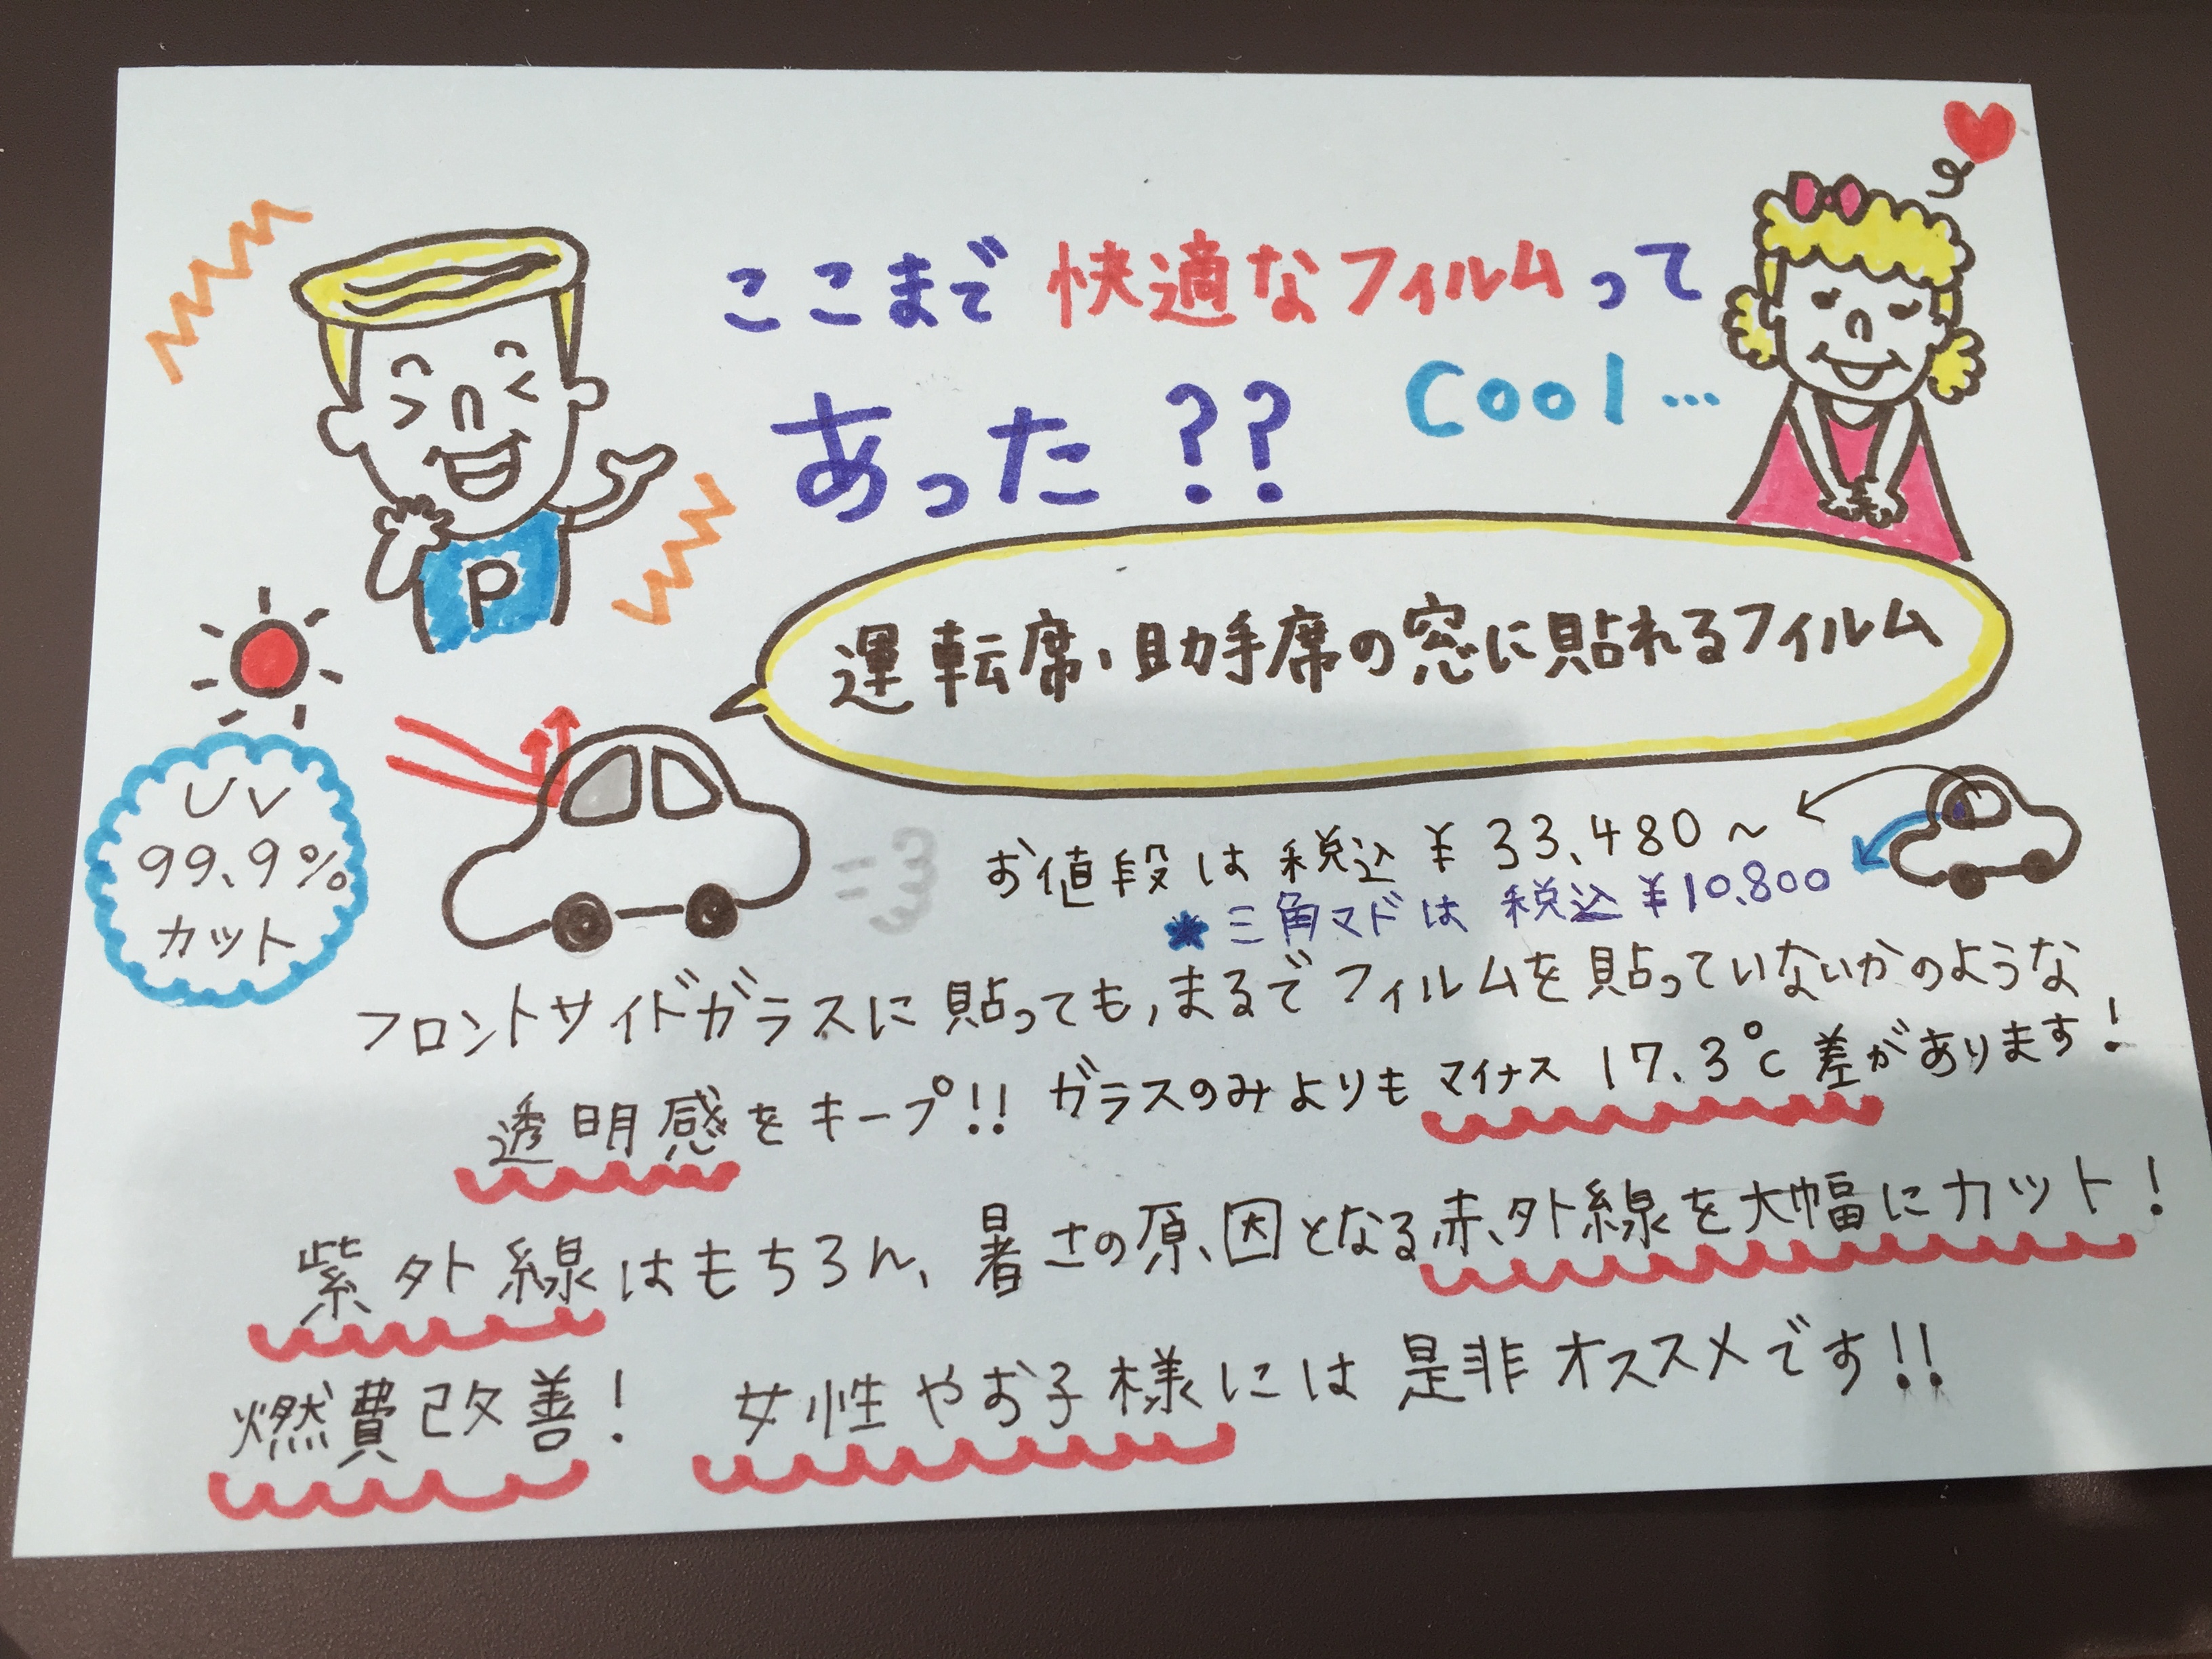 ここまで快適なフィルムって
あった??
Cool…
P
運転席、助手席の窓に貼れるフィルム
UV
99.9%
カット
お値段は税込¥33,480~
*三角マドは税込¥10,800
フロントサイドガラスに貼っても,まるでフィルムを貼っていないかのような
透明感をキープ!!ガラスのみよりもマイナス17.3℃差があります!
紫外線はもちろん、暑さの原因となる赤外線を大幅にカット!
燃費改善! 女性やお子様には是非オススメです!!